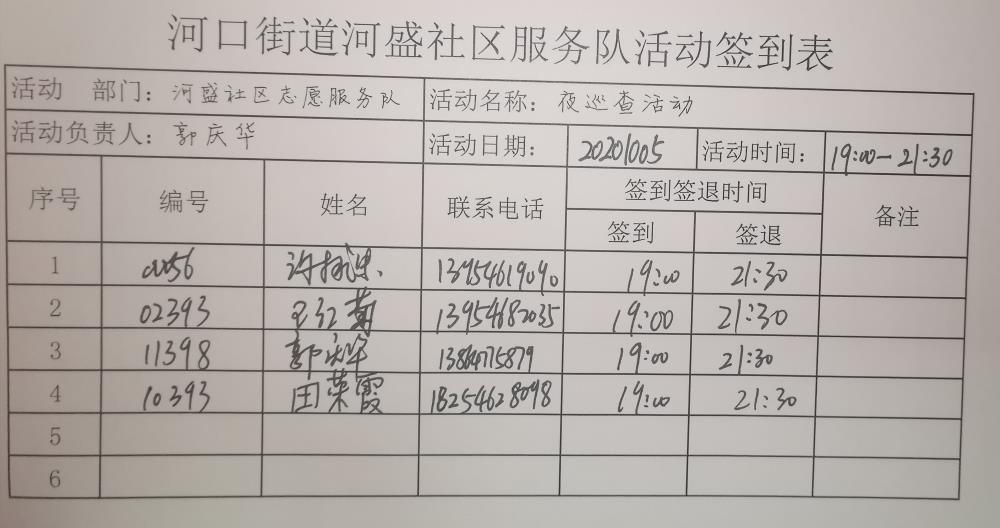 河口街道河盛社区服务队活动签到表
活动 部门：河盛社区志愿服务队 活动名称：夜巡查活动
活动负责人：郭庆华 活动日期：20201005 活动时间：19:00-21:30
序号 编号 姓名 联系电话 签到签退时间 备注
签到 签退
1 13954619090 19:00 21:30
2 02393 王红菊 13954682035 19:00 21:30
3 11398 郭庆华 19:00 21:30
4 10393 田荣霞 18254628098 19:00 21:30
5
6